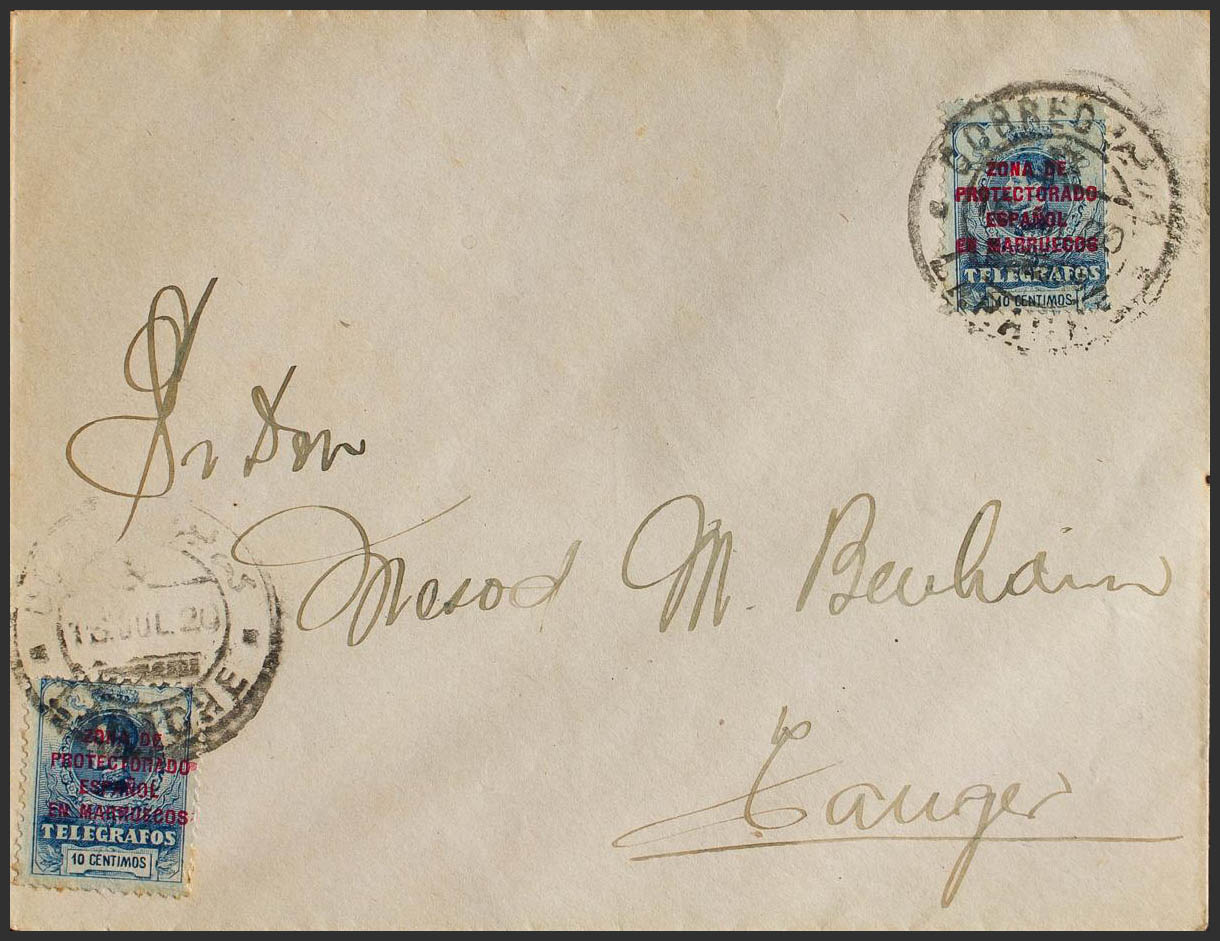 ZONA DE
PROTECTORADO
ESPAÑOL
EN MARRUECOS
TELEGRAFOS
10 CENTIMOS
Sr Don
Mesod M. Benhaim
Tanger
JUL. 20
ZONA DE
PROTECTORADO
ESPAÑOL
EN MARRUECOS
TELEGRAFOS
10 CENTIMOS